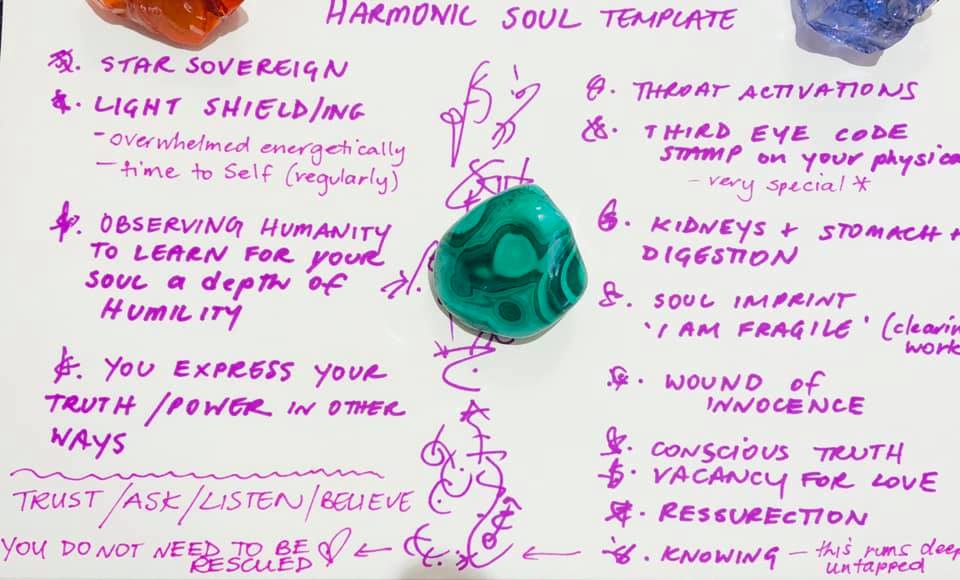 HARMONIC SOUL TEMPLATE
STAR SOVEREIGN
LIGHT SHIELD/ING
- overwhelmed energetically
- time to Self (regularly)
OBSERVING HUMANITY
TO LEARN FOR YOUR
SOUL a depth of
HUMILITY
YOU EXPRESS YOUR
TRUTH / POWER IN OTHER
WAYS
TRUST / ASK / LISTEN / BELIEVE
YOU DO NOT NEED TO BE
RESCUED
THROAT ACTIVATIONS
THIRD EYE CODE
STAMP on your physica
- very special *
KIDNEYS + STOMACH +
DIGESTION
SOUL IMPRINT
'I AM FRAGILE' (clearin
work
WOUND of
INNOCENCE
CONSCIOUS TRUTH
VACANCY FOR LOVE
RESSURECTION
KNOWING - this runs deep
untapped